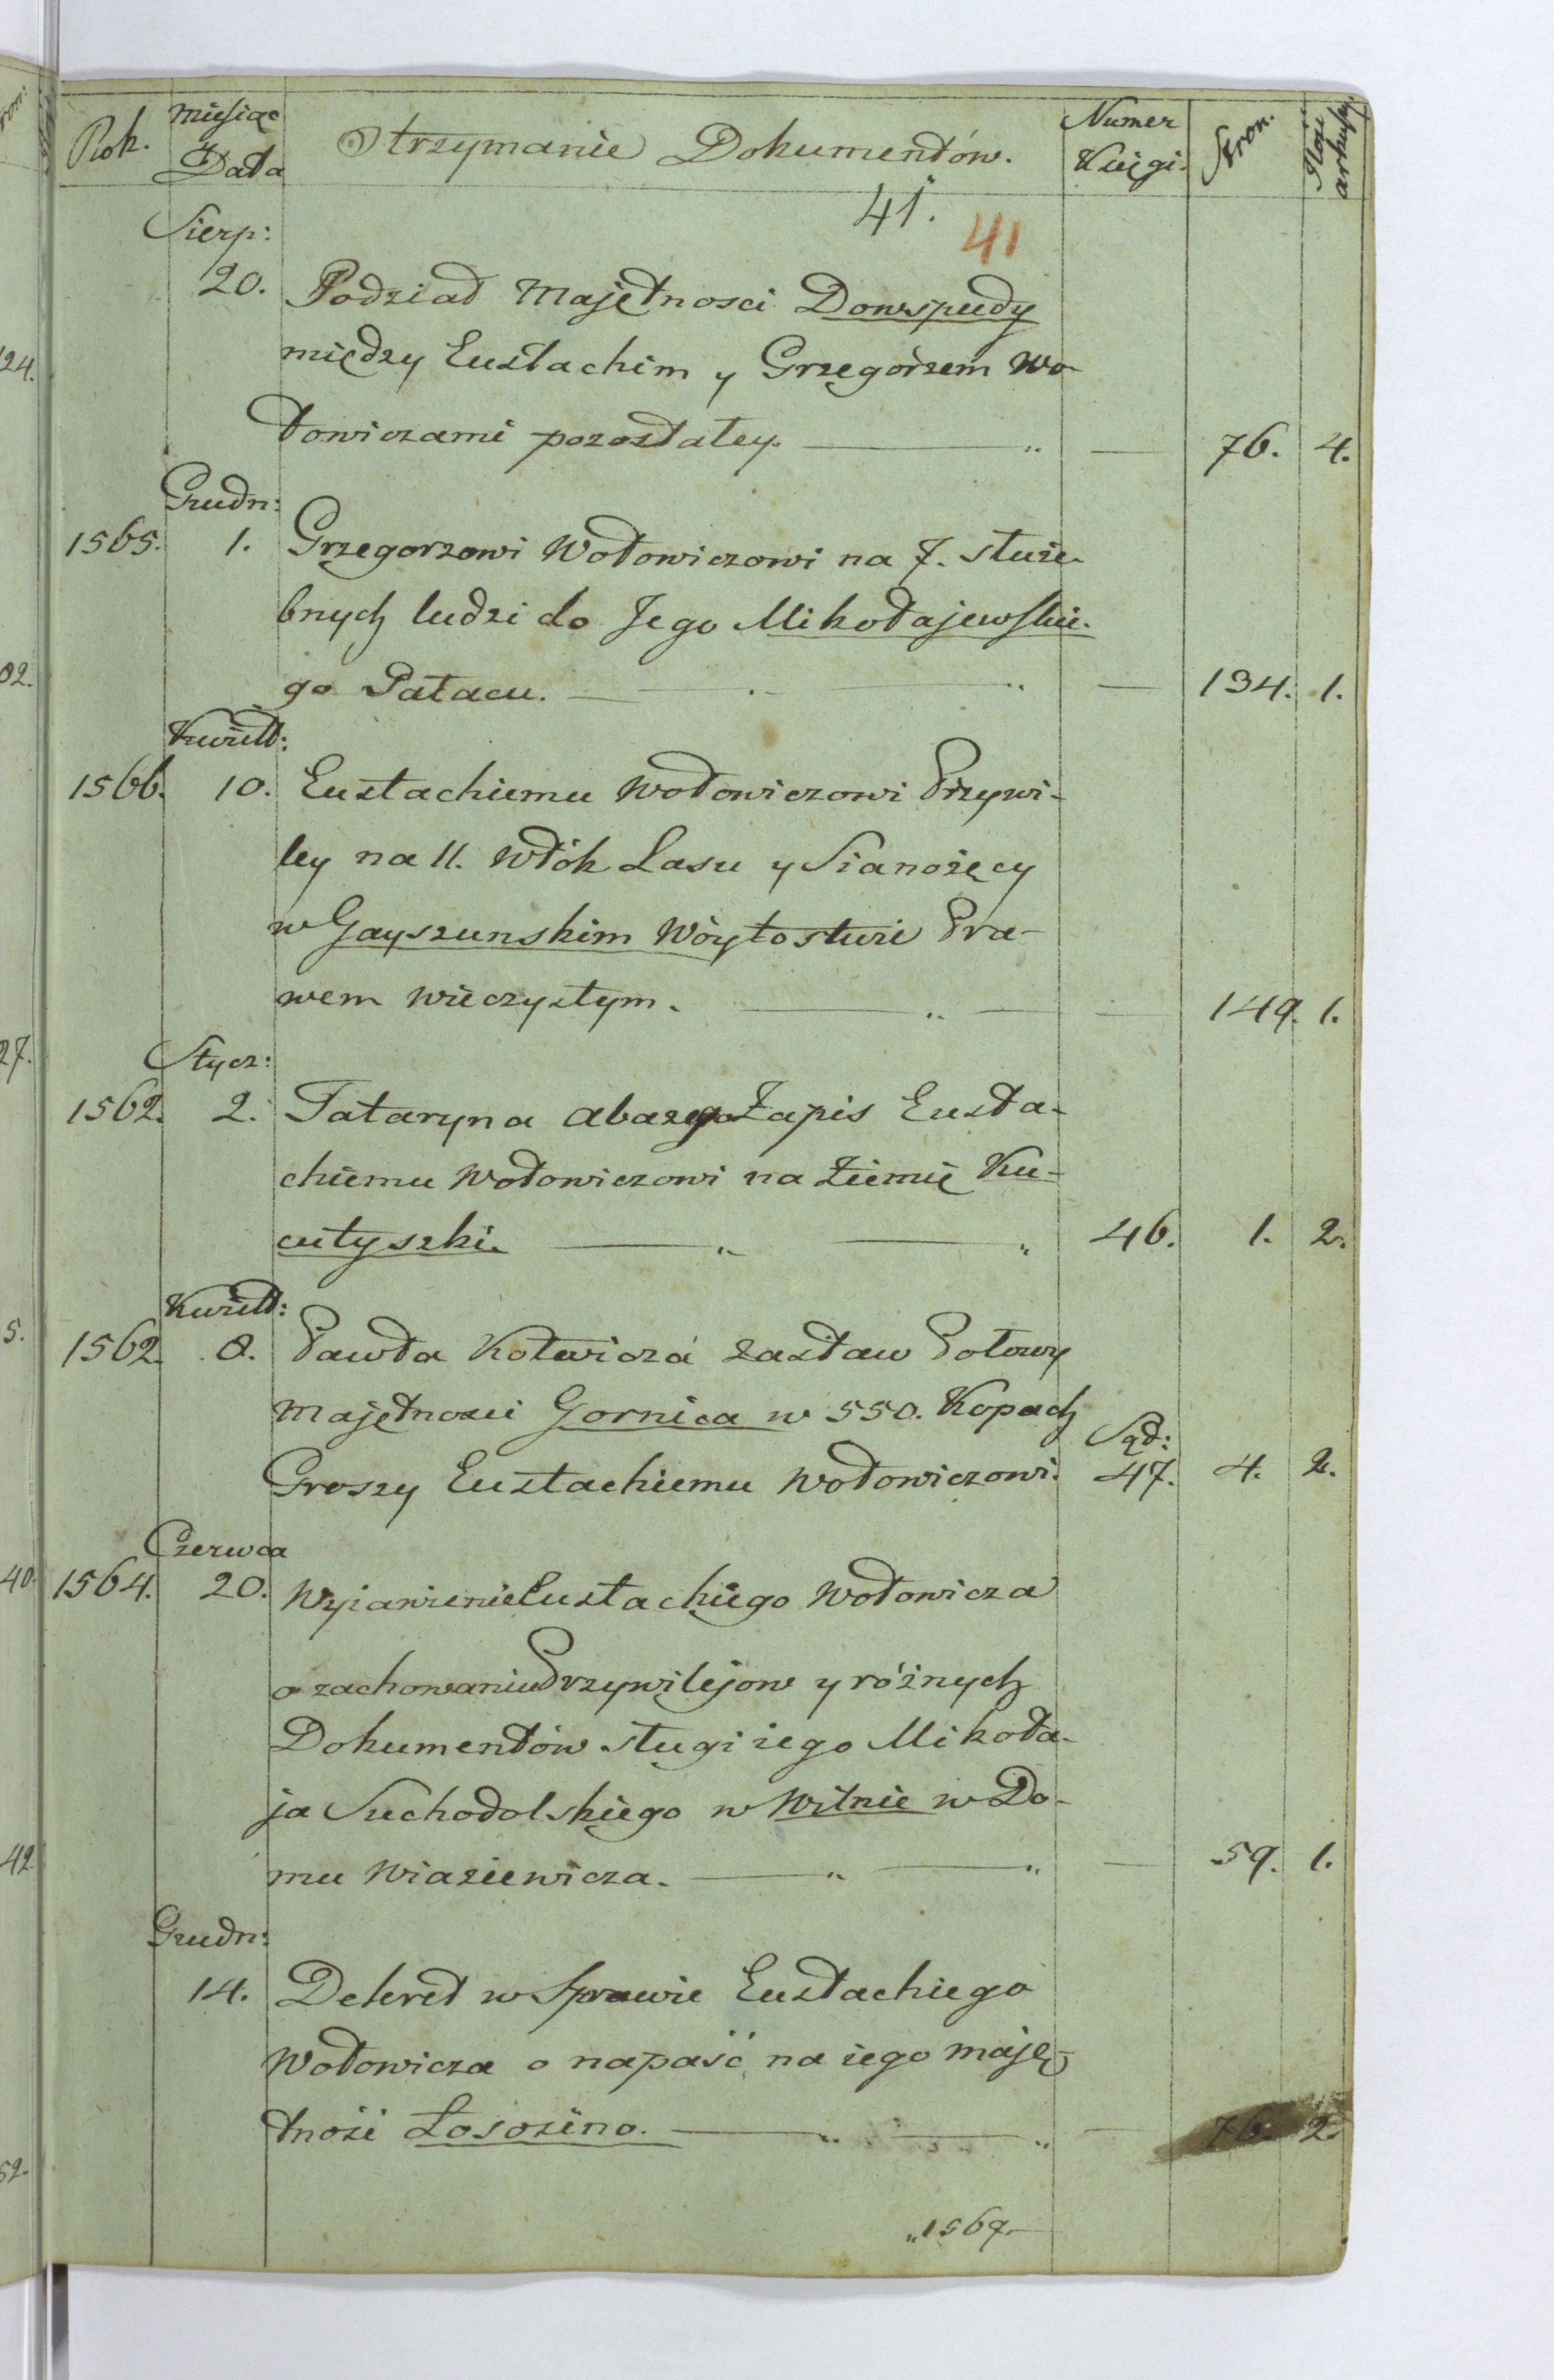 Rok. Miesiąc i Data Otrzymanie Dokumentów. Numer Księgi. Stron. Ilość arkuszy
41. 41
Sierp:
20. Podział Majętnosci Dowspudy
między Eustachim y Grzegorzem Wo-
łowiczami pozostałey. — 76. 4.
Grudn:
1565. 1. Grzegorzowi Wołowiczowi na 7. służe-
bnych ludzi do Jego Mikołajewskie-
go Pałacu. — 134. 1.
Kwiet:
1566. 10. Eustachiemu Wołowiczowi Przywi-
ley na 11. Włók Lasu y Sianożęcy
w Gayszunskim Wóytostwie Pra-
wem wieczystym. — 149. 1.
Stycz:
1562. 2. Tataryna Abazego Zapis Eusta-
chiemu Wołowiczowi na Ziemię Ku-
cutyszki. — 46. 1. 2.
Kwiet:
1562. 8. Pawła Kotwicza zastaw Połowy
Majętnosci Gornica w 550. Kopach
Sąd:
Groszy Eustachiemu Wołowiczowi. 47. 4. 2.
Czerwca
1564. 20. Wyjawienie Eustachiego Wołowicza
o zachowaniu Przywilejow y różnych
Dokumentów sługi iego Mikoła-
ja Suchodolskiego w Wilnie w Do-
mu Wiaziewicza. — 59. 1.
Grudn:
14. Dekret w Sprawie Eustachiego
Wołowicza o napaść na iego Maję-
tność Łosośino. — 76. 2.
„1567.